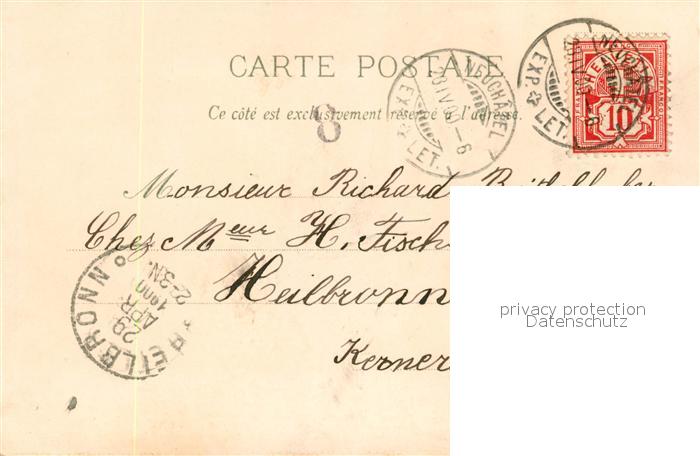 CARTE POSTALE
Ce côté est exclusivement réservé à l'adresse.
8
NEUCHÂTEL
EXP. LET.
EXP. LET.
HELVETIA
FRANCO
10
Monsieur Richard
Chez Meur H. Fisch
Heilbronn
Kerner
HEILBRONN
29
APR
1900
2-3N.
privacy protection
Datenschutz